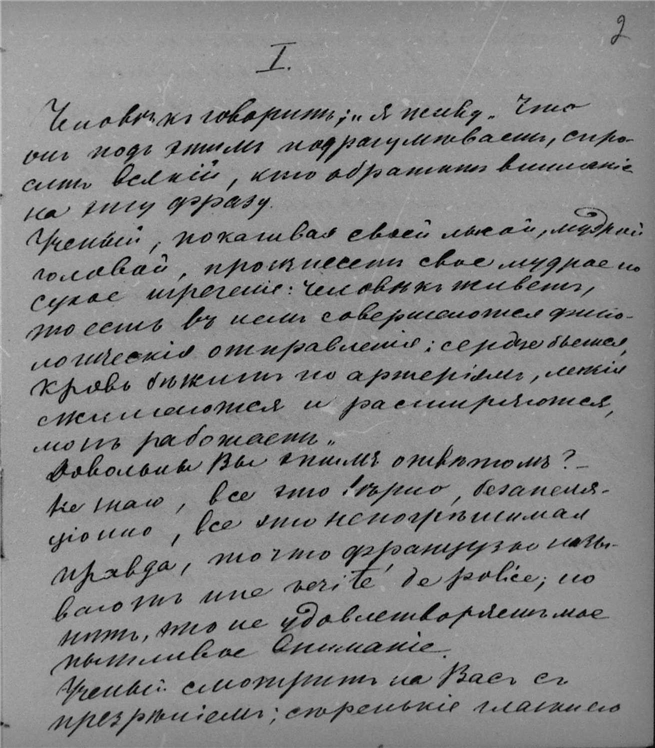 2
I.
Человѣкъ говоритъ: „я живу„ Что
онъ подъ этимъ подразумѣваетъ, спро-
ситъ всякій, кто обратитъ вниманіе
на эту фразу.
Ученый, покачивая своей лысой, мудрой
головой, произнесетъ свое мудрое но
сухое изреченіе: человѣкъ живетъ,
то есть въ немъ совершаются физіо-
логическія отправленія: сердце бьется,
кровь бѣжитъ по артеріямъ, легкія
сжимаются и расширяются,
мозгъ работаетъ„
Довольны Вы этимъ отвѣтомъ? –
Не знаю, все это вѣрно, безапеля-
ціонно, все это непогрѣшимая
правда, то что французы назы-
ваютъ une verité de police; но
нѣтъ, это не удовлетворяетъ мое
пытливое вниманіе.
Ученый смотритъ на Васъ съ
презрѣніемъ; сѣренькіе глазки его